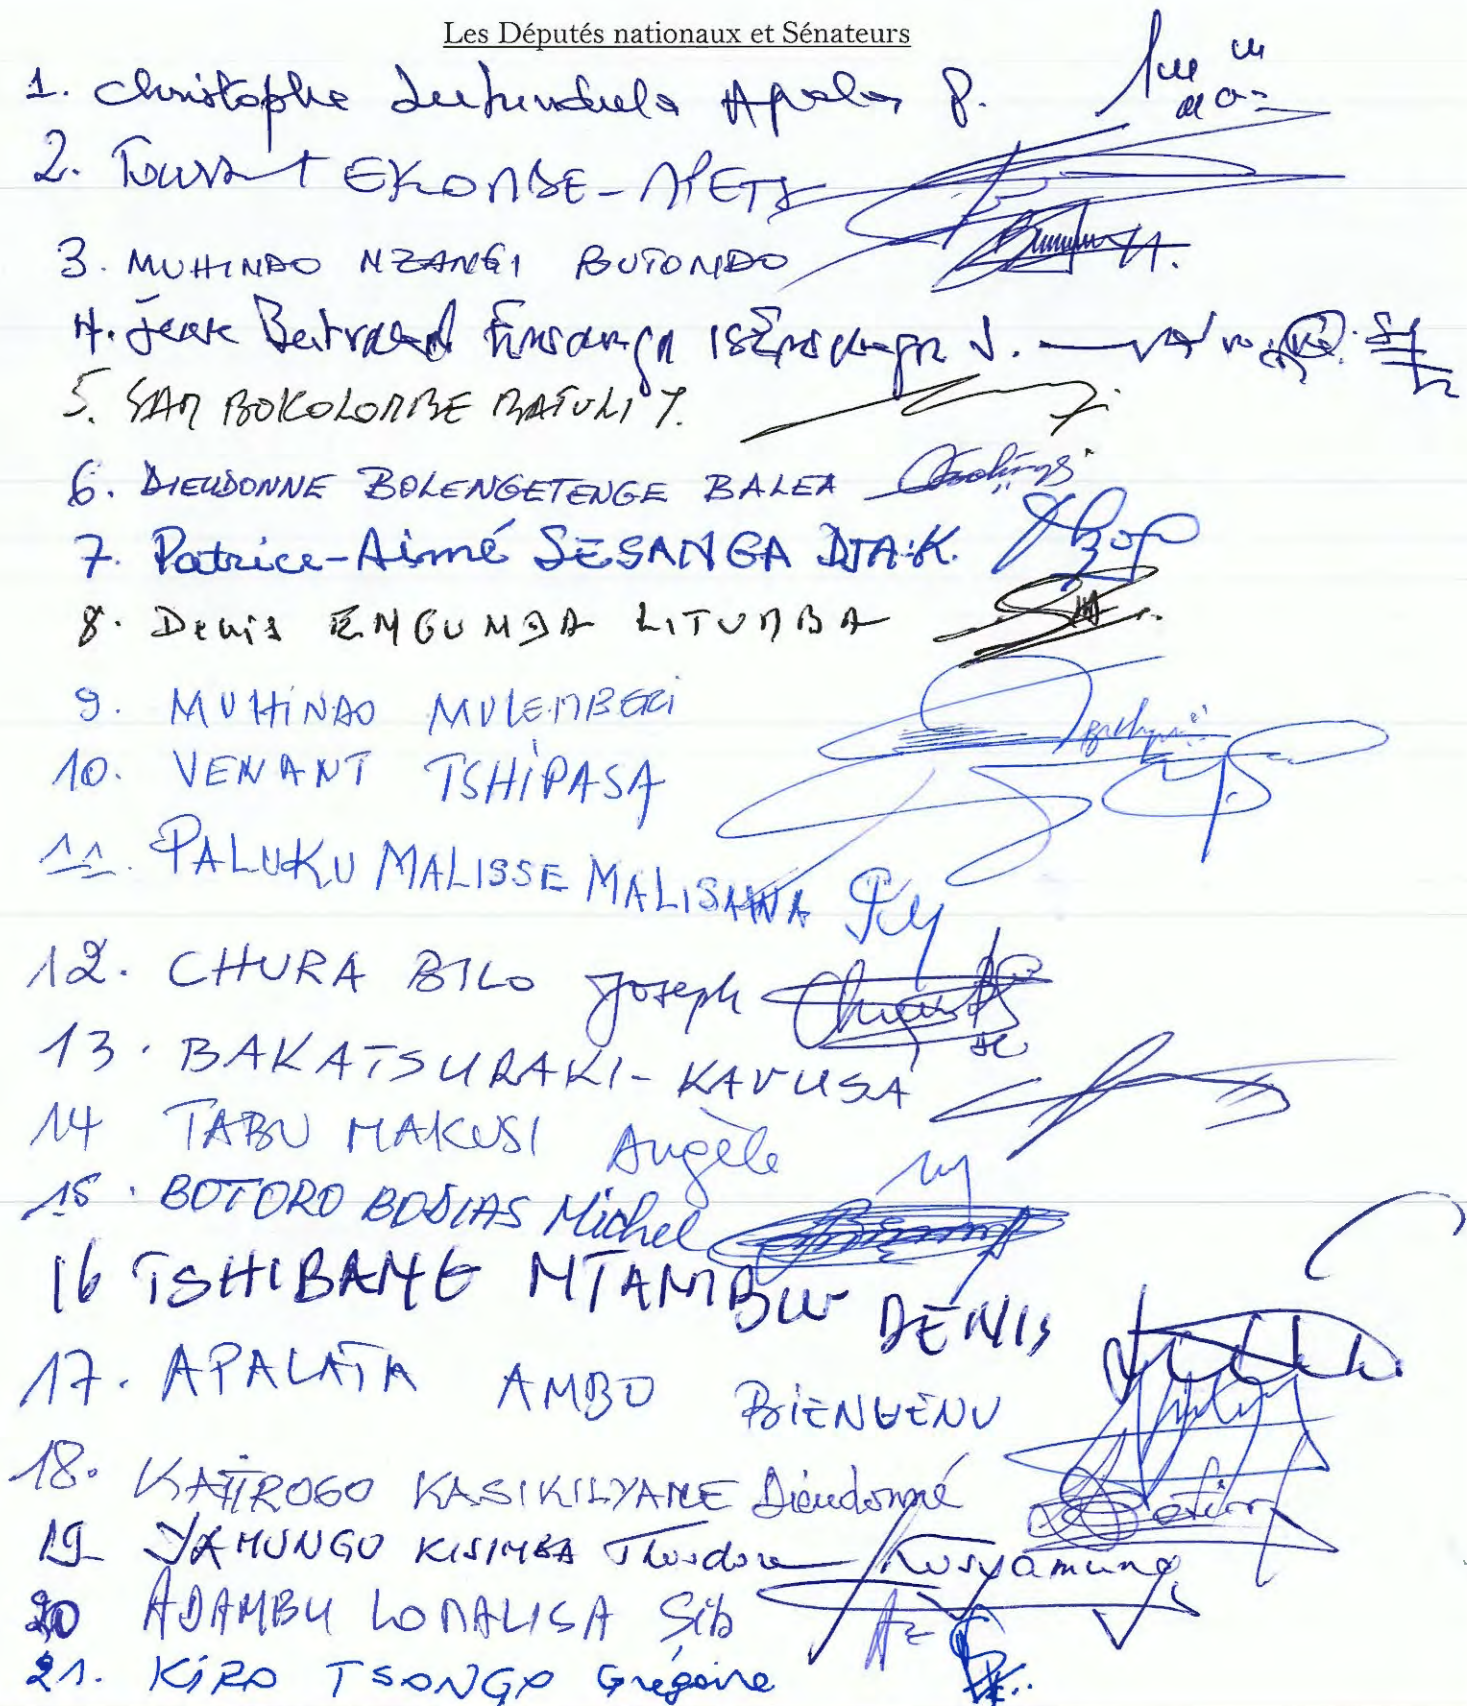 Les Députés nationaux et Sénateurs
1. Christophe Lutundula Apala P.
2. Toussaint EKOMBE-MPETI
3. MUHINDO NZANGI BUTONDO
4. Jean Bertrand
5. SAM BOKOLOMBE BATULI Y.
6. DIEUDONNE BOLENGETENGE BALEA
7. Patrice-Aimé SESANGA DJA.K.
8. Denis ENGUMBA LITUMBA
9. MUHINDO MULEMBERI
10. VENANT TSHIPASA
11. PALUKU MALISSE MALISAWA
12. CHURA BILO Joseph
13. BAKATSURAKI-KAVUSA
14 TABU MAKUSI Angèle
15. BOTORO BOSIAS Michel
16 TSHIBANG NTAMBW DENIS
17. APALATA AMBO BIENVENU
18. KATIROGO KASIKILYANE Dieudonné
19 YAMUNGU KISIMBA Théodore
20 ADAMBU LOMALISA Sib
21. KIRO TSONGO Grégoire